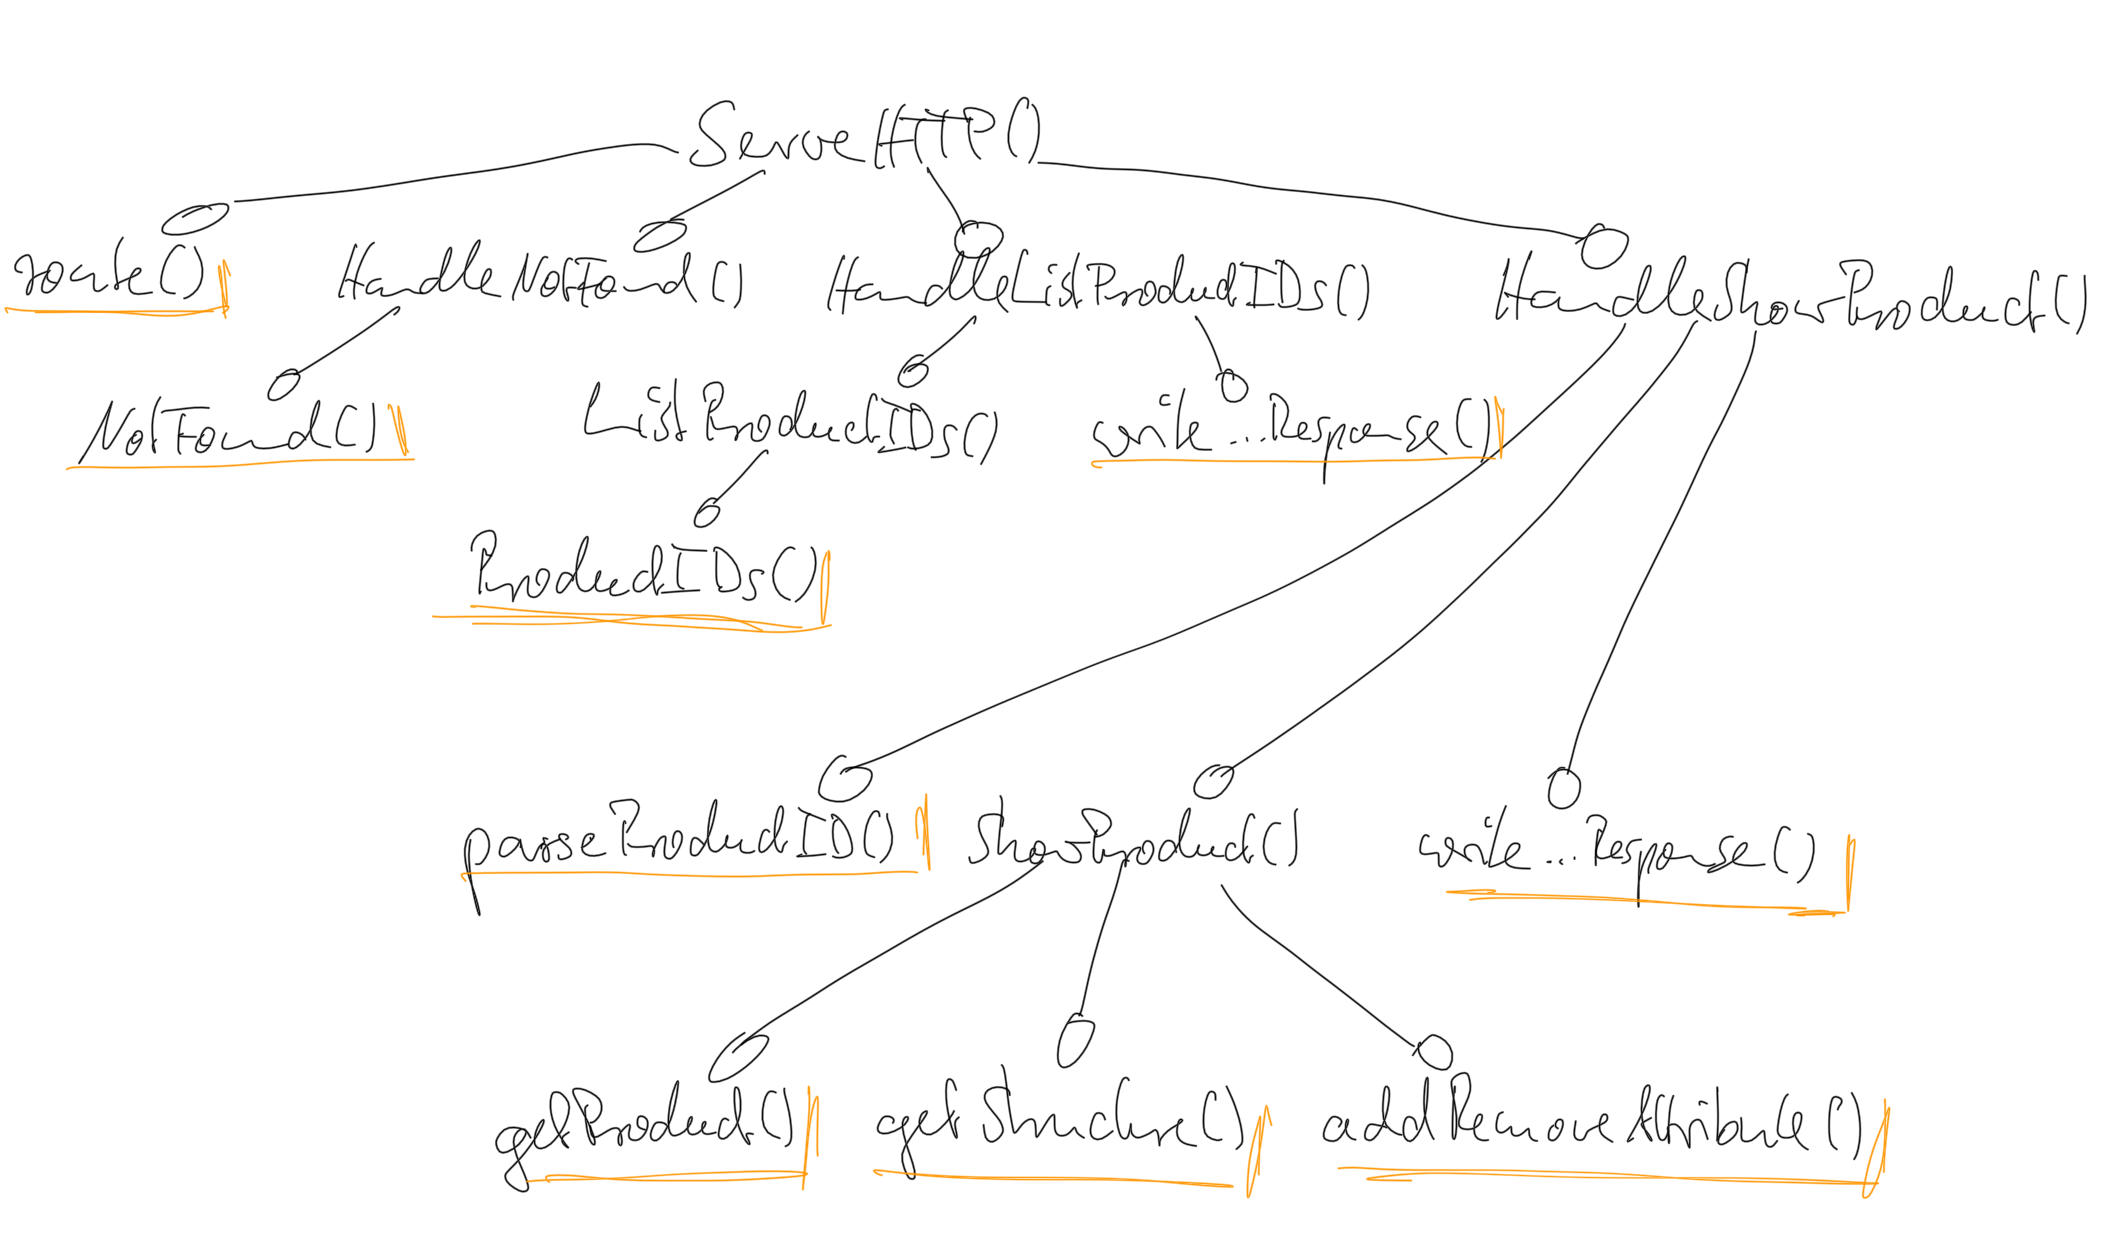 ServeHTTP()
route() HandleNotFound() HandleListProductIDs() HandleShowProduct()
NotFound() ListProductIDs() write...Response()
ProductIDs()
parseProductID() ShowProduct() write...Response()
getProduct() getStructure() addRemoveAttribute()